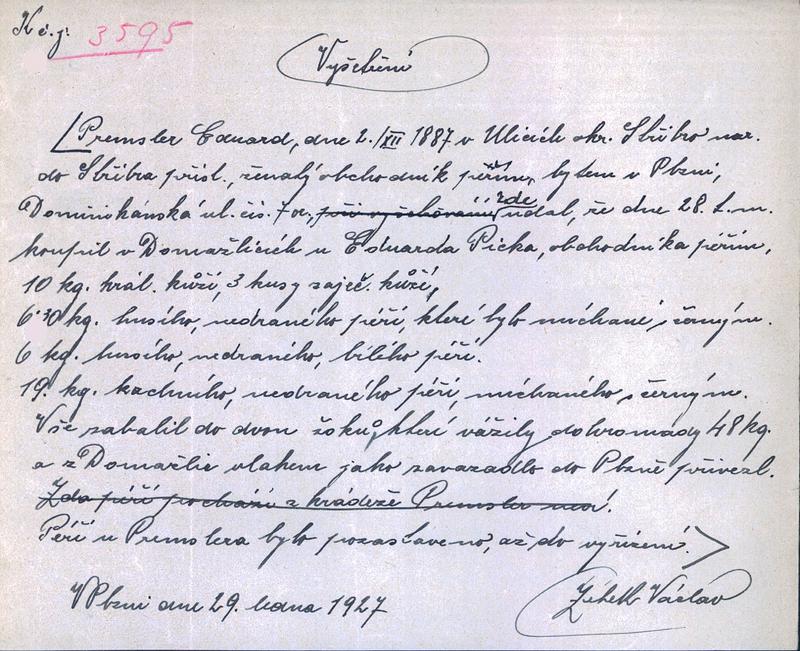 K č.j. 3595
Vyšetření
[Premsler Eduard, dne 2./XII 1887 v Ulicích okr. Stříbro nar.
do Stříbra přísl., ženatý obchodník peřím, bytem v Plzni,
Dominikánská ul. čís. 7 a, při vyšetřování zde udal, že dne 28. t. m.
koupil v Domažlicích u Eduarda Picka, obchodníka peřím,
10 kg. král. kůží, 3 kusy zaječ. kůží,
6·30 kg. husího, nedraného péří, které bylo míchané s černým.
6 kg. husího, nedraného, bílého péří.
19. kg. kachního, nedraného péří, míchaného s černým.
Vše zabalil do dvou žoků, kteří vážily dohromady 48 kg.
a z Domažlic vlakem jako zavazadlo do Plzně přivezl.
Zda péří pochází z krádeže Premsler neví.
Péří u Premslera bylo pozastaveno, až do vyřízení.>
V Plzni dne 29. ledna 1927
Václav